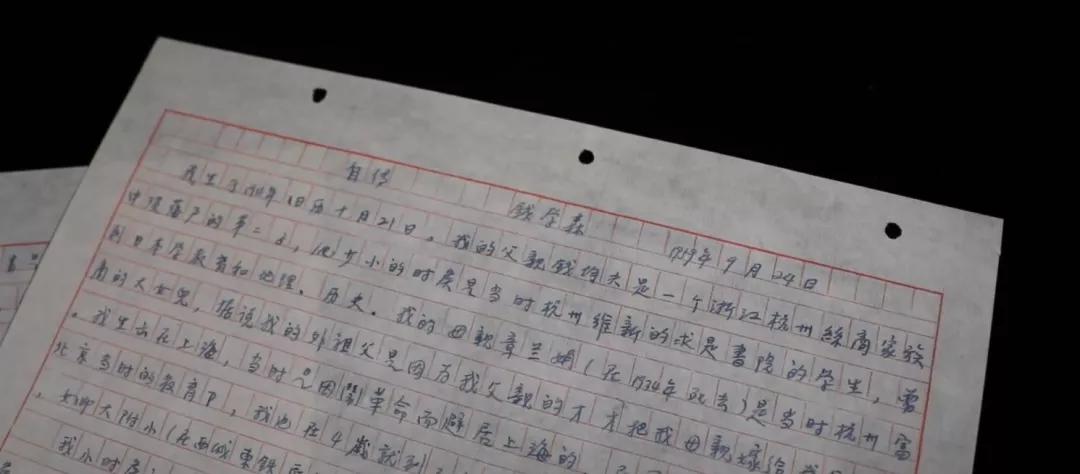 自传
钱学森
1959年9月24日
我生于1911年旧历十月21日。我的父亲钱均夫是一个浙江杭州絲商家族
中没落户的第二子,他少小的时候是当时杭州维新的求是書院的学生,曾
到日本学教育和地理、历史。我的母親章兰娟(在1934年死去)是当时杭州富
商的女兒,据说我的外祖父是因为我父親的才才把我母親嫁给
。我生出在上海,当时是因鬧革命而避居上海的
北京当时的教育卩,我也在4歲就到
,女师大附小(在西城東鉄
我小时